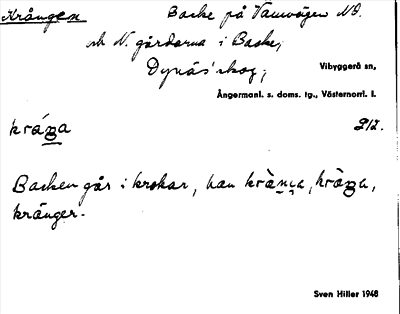 Krången Backe på Vammvägen NO.
och N. gårdarna i Backe,
Dynäs' skog,
Vibyggerå sn,
Ångermanl. s. doms. tg., Västernorrl. l.
kråŋa 212.
Backen går i krokar, han kràŋa, kràŋa,
krånger.
Sven Hiller 1948